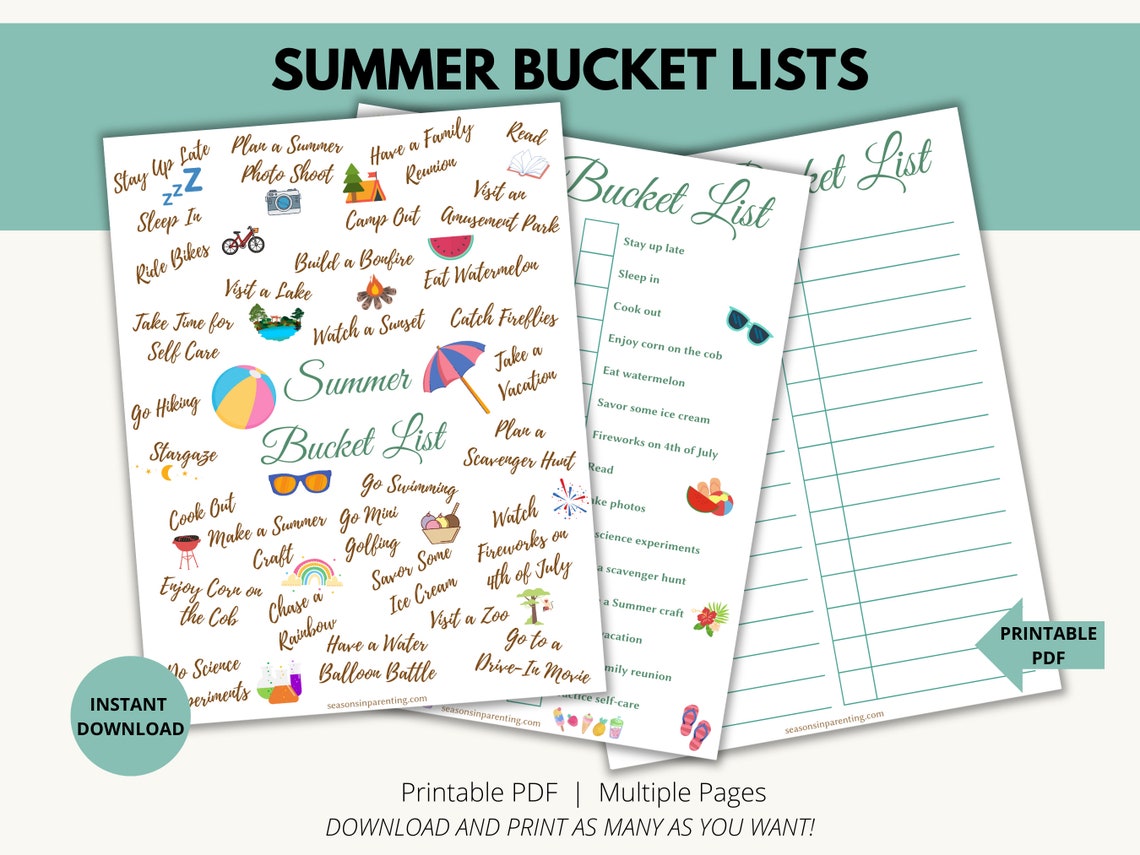 SUMMER BUCKET LISTS
Stay Up Late
Plan a Summer
Photo Shoot
Have a Family
Reunion
Read
Sleep In
Camp Out
Visit an
Amusement Park
Ride Bikes
Build a Bonfire
Eat Watermelon
Visit a Lake
Take Time for
Self Care
Watch a Sunset
Catch Fireflies
Go Hiking
Summer
Bucket List
Take a
Vacation
Stargaze
Plan a
Scavenger Hunt
Cook Out
Go Swimming
Make a Summer
Craft
Go Mini
Golfing
Savor Some
Ice Cream
Watch
Fireworks on
4th of July
Enjoy Corn on
the Cob
Chase a
Rainbow
Visit a Zoo
Have a Water
Balloon Battle
Go to a
Drive-In Movie
Do Science
periments
seasonsinparenting.com
Bucket List
Stay up late
Sleep in
Cook out
Enjoy corn on the cob
Eat watermelon
Savor some ice cream
Fireworks on 4th of July
Read
ke photos
science experiments
a scavenger hunt
a Summer craft
vacation
mily reunion
ctice self-care
seasonsinparenting.com
ket List
seasonsinparenting.com
INSTANT
DOWNLOAD
PRINTABLE
PDF
Printable PDF | Multiple Pages
DOWNLOAD AND PRINT AS MANY AS YOU WANT!